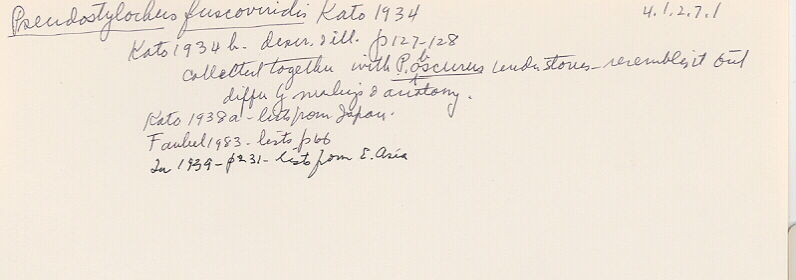 Pseudostylochus fuscoviridis Kato 1934 4.1.2.7.1
Kato 1934 b. descr. & ill. p127-128
collected together with P. obscurus under stones - resembles it but
differs by markings & anatomy.
Kato 1938a - lists from Japan.
Faubel 1983 - lists p66
In 1939 - p231 - lists from E. Asia